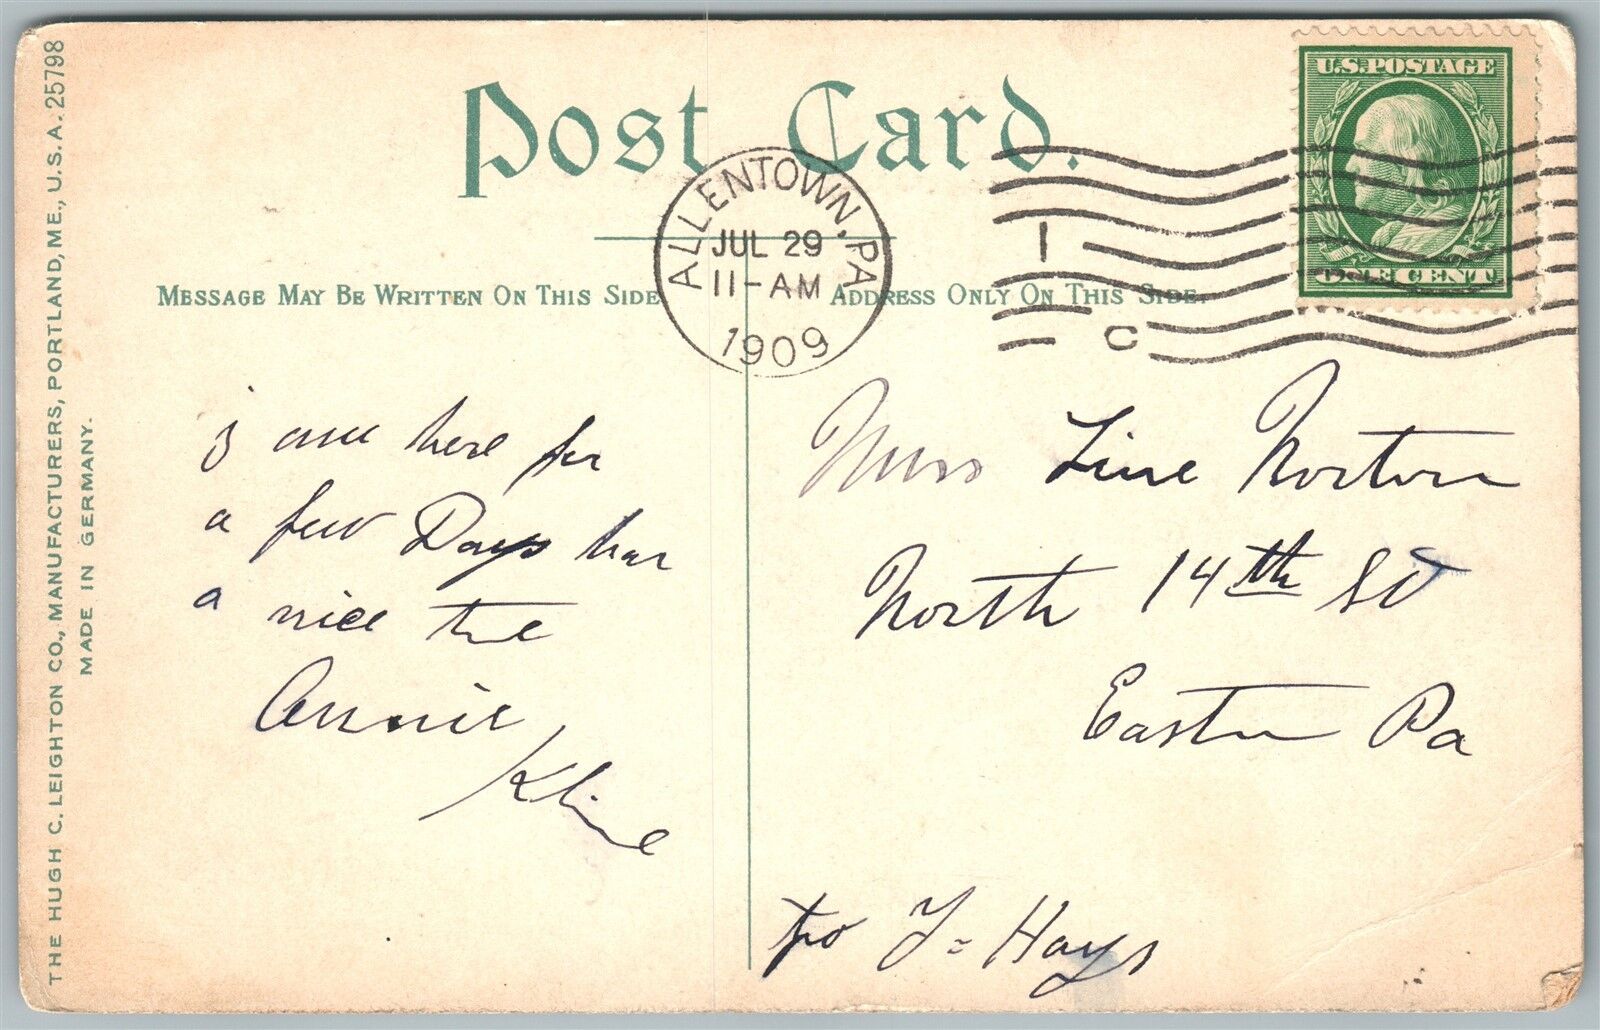 THE HUGH C. LEIGHTON CO., MANUFACTURERS, PORTLAND, ME., U.S.A. 25798
MADE IN GERMANY.
Post Card.
U.S. POSTAGE
ONE CENT
ALLENTOWN, PA
JUL 29
11-AM
1909
1
C
MESSAGE MAY BE WRITTEN ON THIS SIDE.
ADDRESS ONLY ON THIS SIDE.
here for
a few Days
a nice
Annie
Kline
Miss Line Norton
North 14th St
Easton Pa
Hays